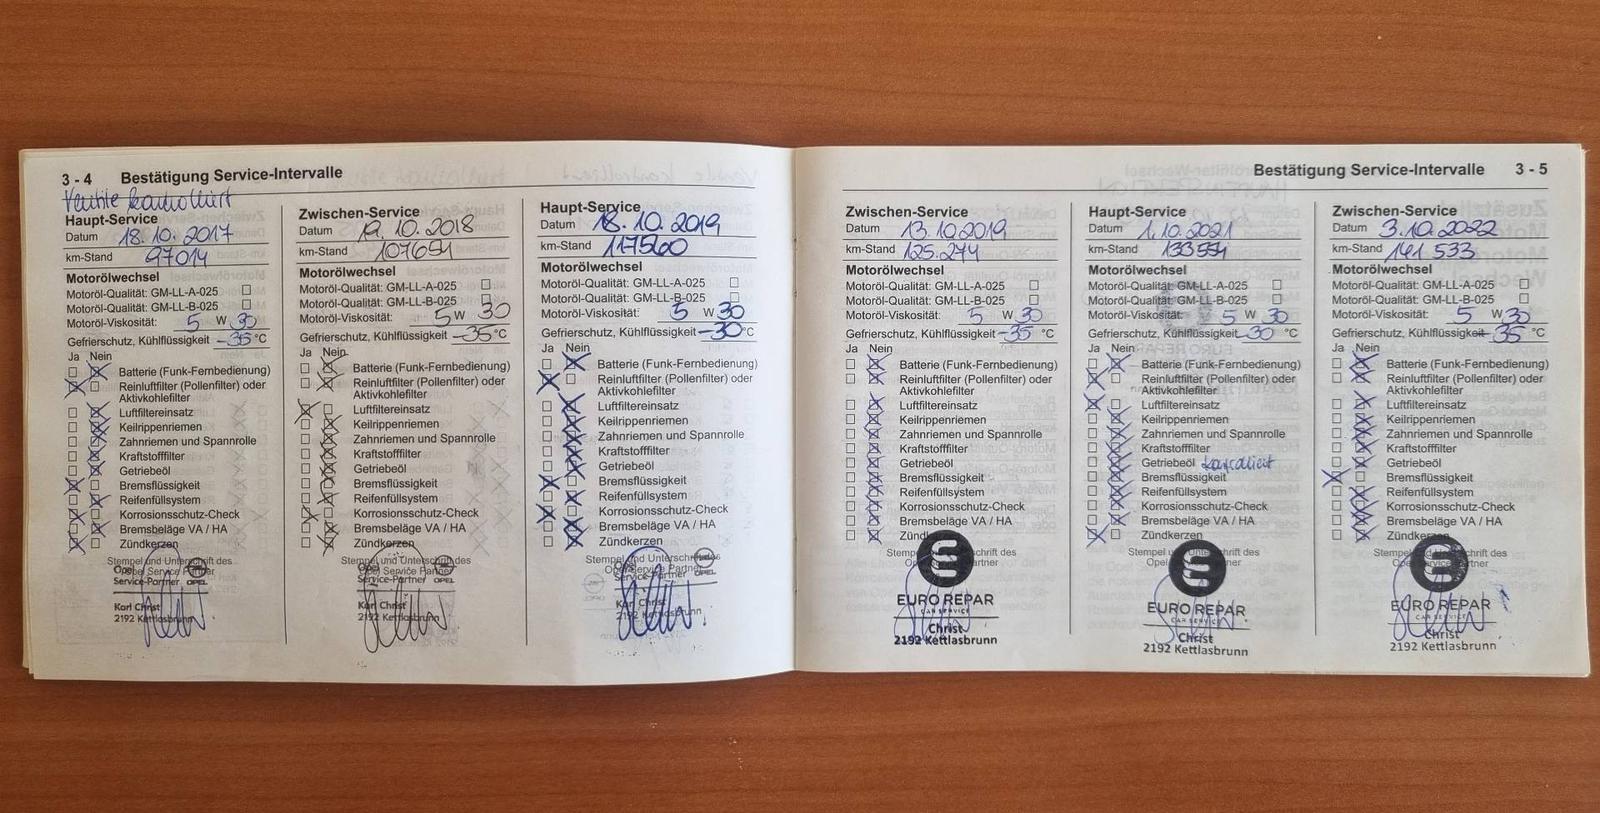 3 - 4 Bestätigung Service-Intervalle
Ventile kontrolliert
Haupt-Service
Datum 18.10.2017
km-Stand 97014
Motorölwechsel
Motoröl-Qualität: GM-LL-A-025
GM-LL-B-025
Motoröl-Viskosität: 5 W 30
Gefrierschutz, Kühlflüssigkeit -35 °C
Ja Nein
Batterie (Funk-Fernbedienung)
Reinluftfilter (Pollenfilter) oder
Aktivkohlefilter
Luftfiltereinsatz
Keilrippenriemen
Zahnriemen und Spannrolle
Kraftstofffilter
Getriebeöl
Bremsflüssigkeit
Reifenfüllsystem
Korrosionsschutz-Check
Bremsbeläge VA / HA
Zündkerzen
Stempel und Unterschrift des
Opel Service Partner
Opel
Service-Partner OPEL
Karl Christ
2192 Kettlasbrunn
Zwischen-Service
Datum 19.10.2018
km-Stand 107651
Motorölwechsel
Motoröl-Qualität: GM-LL-A-025
GM-LL-B-025
Motoröl-Viskosität: 5 W 30
Gefrierschutz, Kühlflüssigkeit -35 °C
Ja Nein
Batterie (Funk-Fernbedienung)
Reinluftfilter (Pollenfilter) oder
Aktivkohlefilter
Luftfiltereinsatz
Keilrippenriemen
Zahnriemen und Spannrolle
Kraftstofffilter
Getriebeöl
Bremsflüssigkeit
Reifenfüllsystem
Korrosionsschutz-Check
Bremsbeläge VA / HA
Zündkerzen
Stempel und Unterschrift des
Opel Service Partner
Service-Partner OPEL
Karl Christ
2192 Kettlasbrunn
Haupt-Service
Datum 18.10.2019
km-Stand 117560
Motorölwechsel
Motoröl-Qualität: GM-LL-A-025
GM-LL-B-025
Motoröl-Viskosität: 5 W 30
Gefrierschutz, Kühlflüssigkeit -30 °C
Ja Nein
Batterie (Funk-Fernbedienung)
Reinluftfilter (Pollenfilter) oder
Aktivkohlefilter
Luftfiltereinsatz
Keilrippenriemen
Zahnriemen und Spannrolle
Kraftstofffilter
Getriebeöl
Bremsflüssigkeit
Reifenfüllsystem
Korrosionsschutz-Check
Bremsbeläge VA / HA
Zündkerzen
Stempel und Unterschrift des
Opel Service Partner
Service-Partner OPEL
Karl Christ
2192 Kettlasbrunn
Bestätigung Service-Intervalle 3 - 5
Zwischen-Service
Datum 13.10.2019
km-Stand 125.274
Motorölwechsel
Motoröl-Qualität: GM-LL-A-025
GM-LL-B-025
Motoröl-Viskosität: 5 W 30
Gefrierschutz, Kühlflüssigkeit -35 °C
Ja Nein
Batterie (Funk-Fernbedienung)
Reinluftfilter (Pollenfilter) oder
Aktivkohlefilter
Luftfiltereinsatz
Keilrippenriemen
Zahnriemen und Spannrolle
Kraftstofffilter
Getriebeöl
Bremsflüssigkeit
Reifenfüllsystem
Korrosionsschutz-Check
Bremsbeläge VA / HA
EURO REPAR
CAR SERVICE
Christ
2192 Kettlasbrunn
Haupt-Service
Datum 1.10.2021
km-Stand
Motorölwechsel
Motoröl-Qualität: GM-LL-A-025
GM-LL-B-025
Motoröl-Viskosität: 5 W 30
Gefrierschutz, Kühlflüssigkeit -30 °C
Ja Nein
Batterie (Funk-Fernbedienung)
Reinluftfilter (Pollenfilter) oder
Aktivkohlefilter
Luftfiltereinsatz
Keilrippenriemen
Zahnriemen und Spannrolle
Kraftstofffilter
Getriebeöl kontrolliert
Bremsflüssigkeit
Reifenfüllsystem
Korrosionsschutz-Check
Bremsbeläge VA / HA
Zündkerzen
EURO REPAR
CAR SERVICE
Christ
2192 Kettlasbrunn
Zwischen-Service
Datum 3.10.2022
km-Stand 141 533
Motorölwechsel
Motoröl-Qualität: GM-LL-A-025
GM-LL-B-025
Motoröl-Viskosität: 5 W 30
Gefrierschutz, Kühlflüssigkeit -35 °C
Ja Nein
Batterie (Funk-Fernbedienung)
Reinluftfilter (Pollenfilter) oder
Aktivkohlefilter
Luftfiltereinsatz
Keilrippenriemen
Zahnriemen und Spannrolle
Kraftstofffilter
Getriebeöl
Bremsflüssigkeit
Reifenfüllsystem
Korrosionsschutz-Check
Bremsbeläge VA / HA
Zündkerzen
EURO REPAR
CAR SERVICE
Christ
2192 Kettlasbrunn